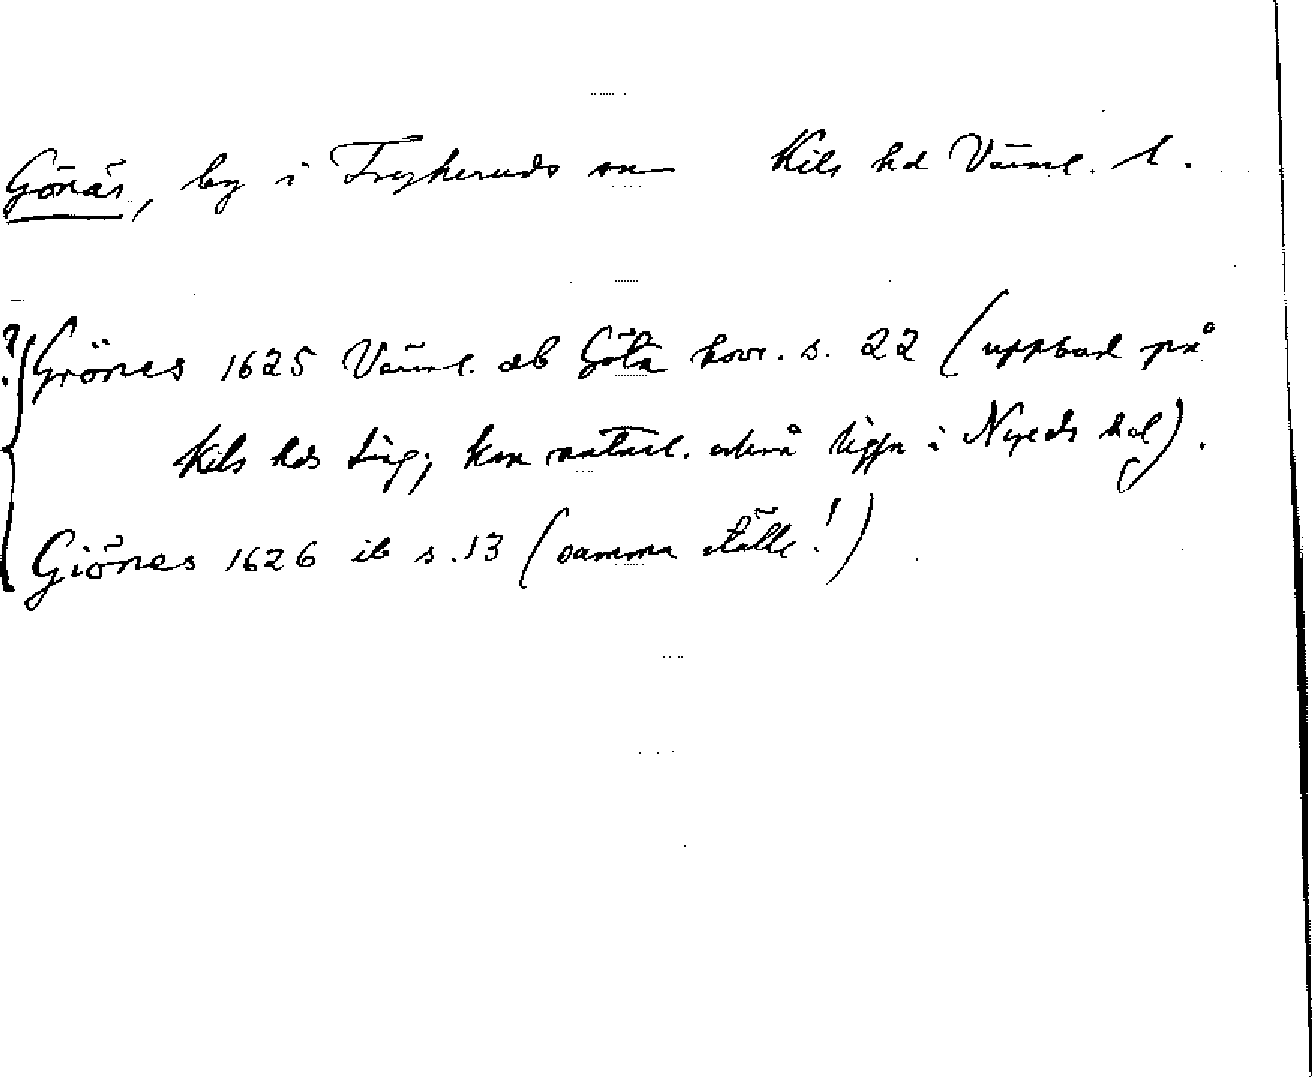 Gönäs, by i Frykeruds sn Kils hd Värml. l.
? Grönes 1625 Värml. db Göta hovr. s. 22 (uppbud på
Kils hds ting; kan naturl. också ligga i Nyeds hd).
Giönes 1626 ib s. 13 (samma ställe!)